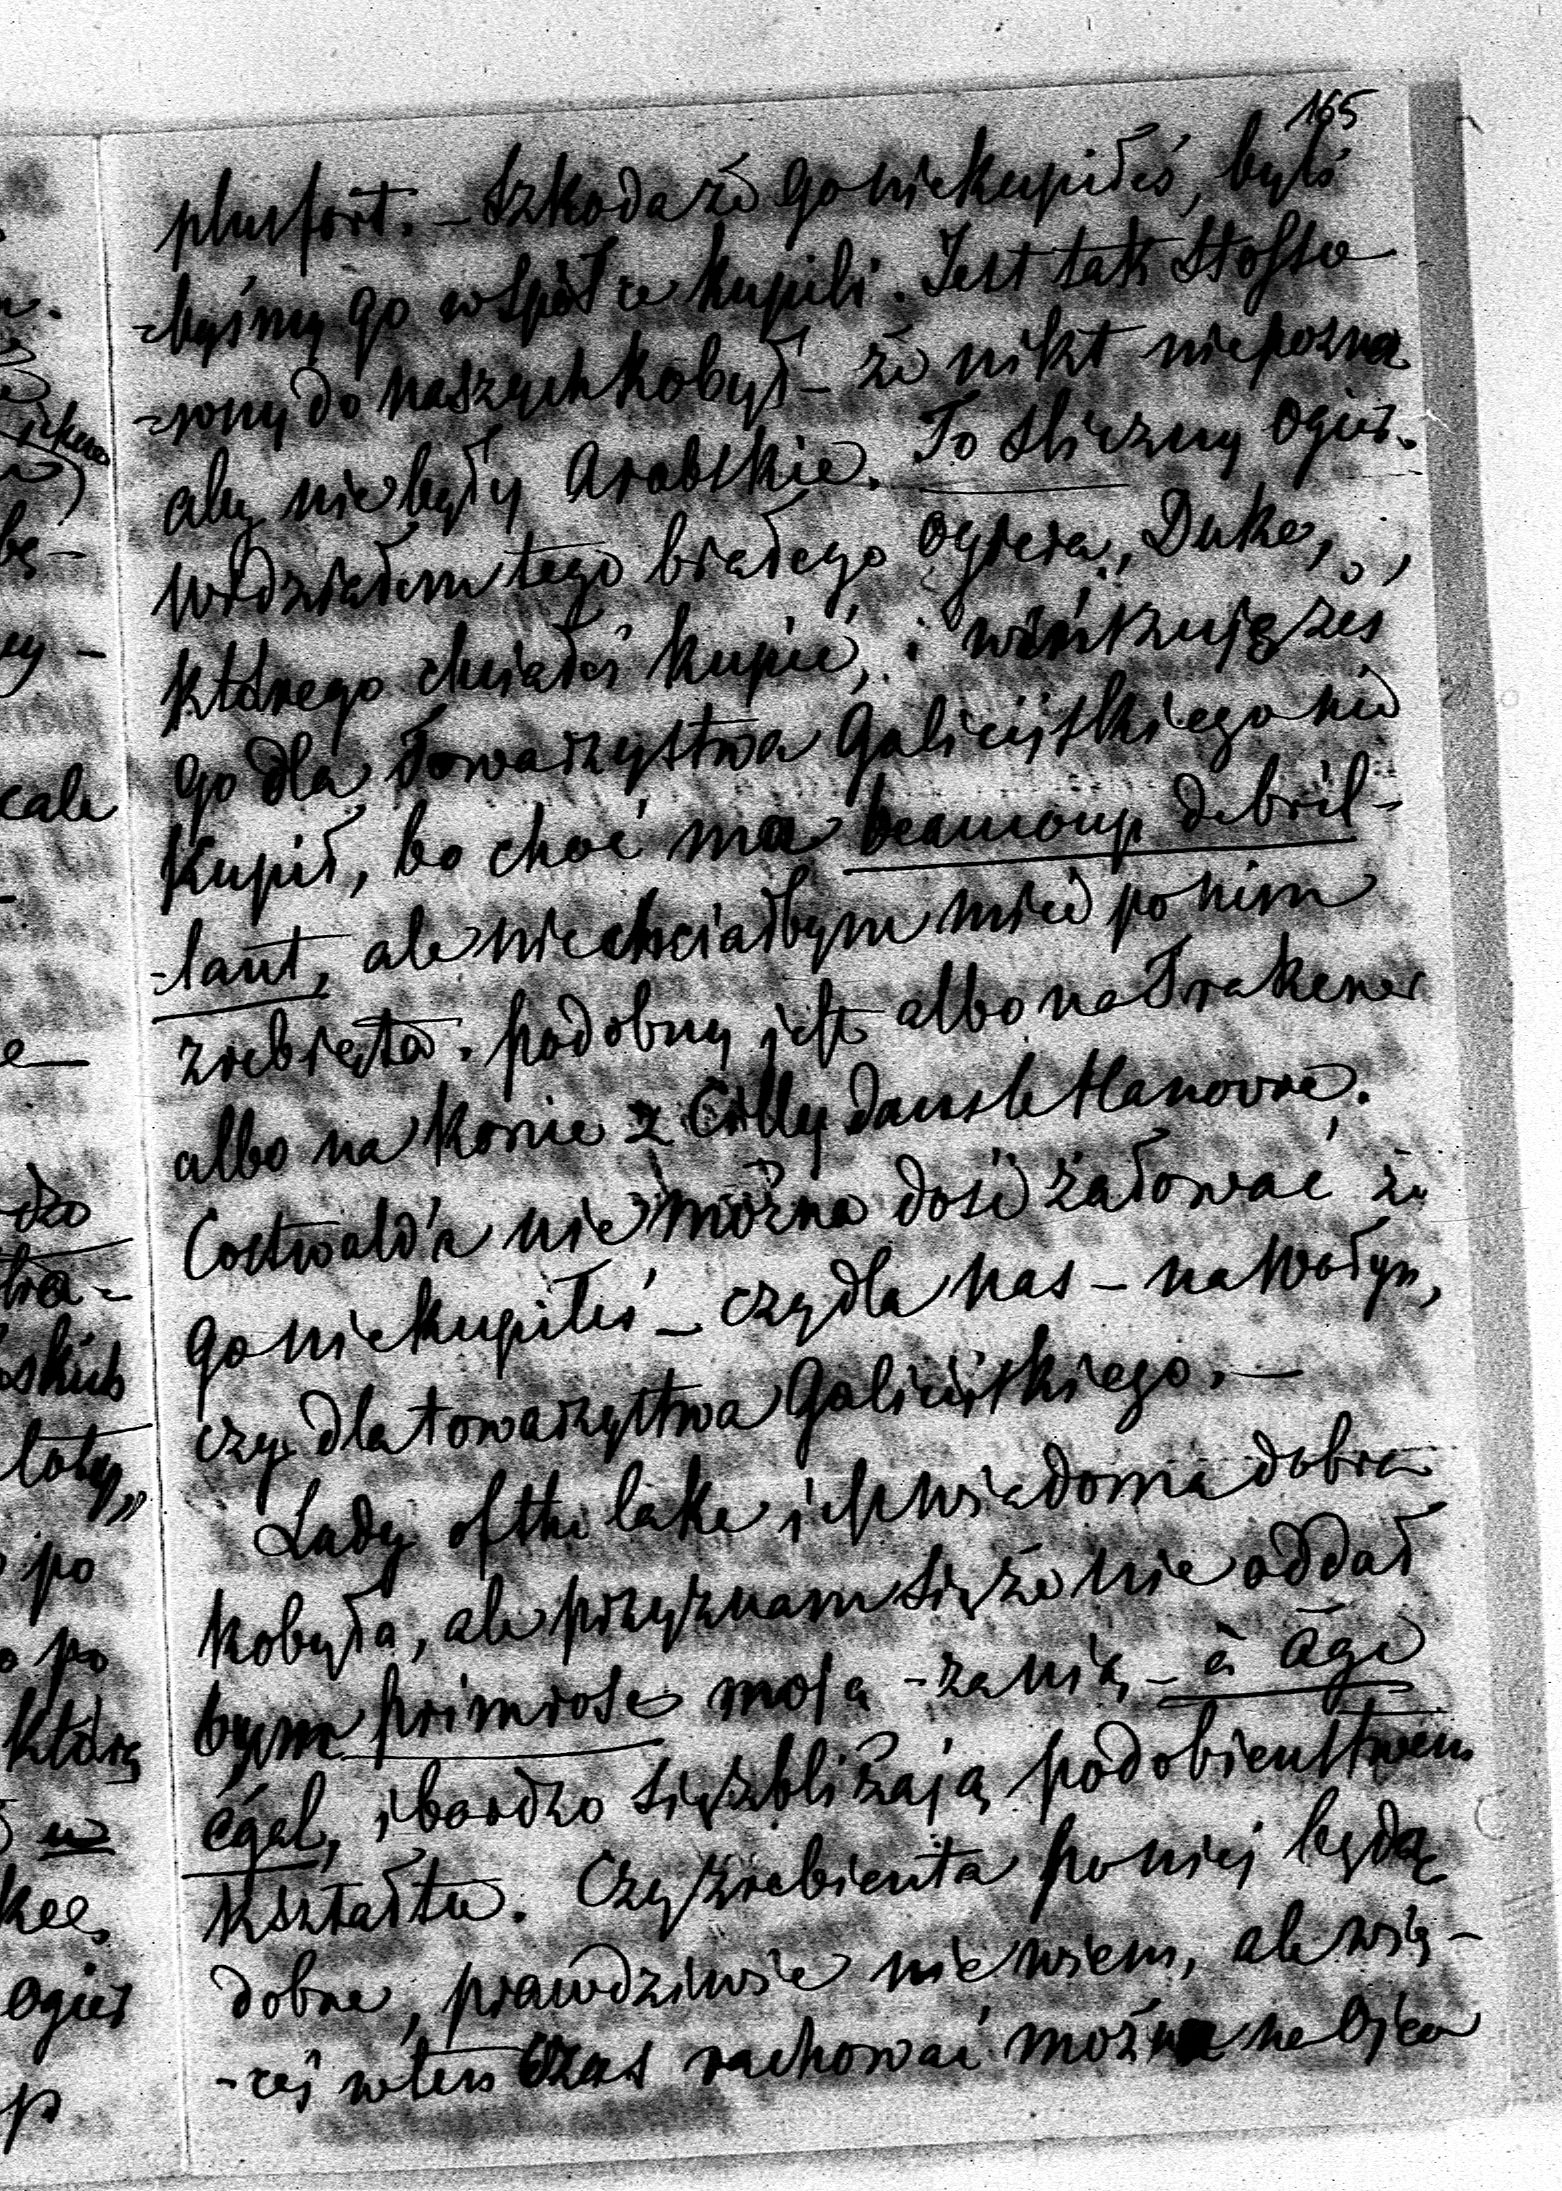 165
plus fort. – Szkoda że go niekupiłeś, byli
-byśmy go w spółce kupili. Jest tak stosso
-wny do naszych kobył – że nikt niepozna
aby nie były Arabskie. To śliczny ogier.
Widziałem tego białego Ogiera, Duke,
którego chciałeś kupić, i winszuję żes
go dla Towarzystwa Galicijskiego nie
kupił, bo choć ma beaucoup de bril-
-lant, ale niechciałbym mieć po nim
zrebięta. podobny jest albo na Trakener
albo na konie z Celly dans le Hanovre.
Costwald'a nie można dość żałować że
go niekupiłeś – czy dla nas – na Wołyn,
czy dla towarzystwa Galicijskiego. –
Lady of the lake jest wiadoma dobra
kobyła, ale przyznam się że nie oddał
bym primrose moją – za nią – à âge
égal, i bardzo się zbliżają podobieństwem
kształtu. Czy zrebienta po niej będą
dobre, prawdziwie nie wiem, ale wię-
-cej w ten czas rachować można na Ojca
cale
po
po
którą
ogier